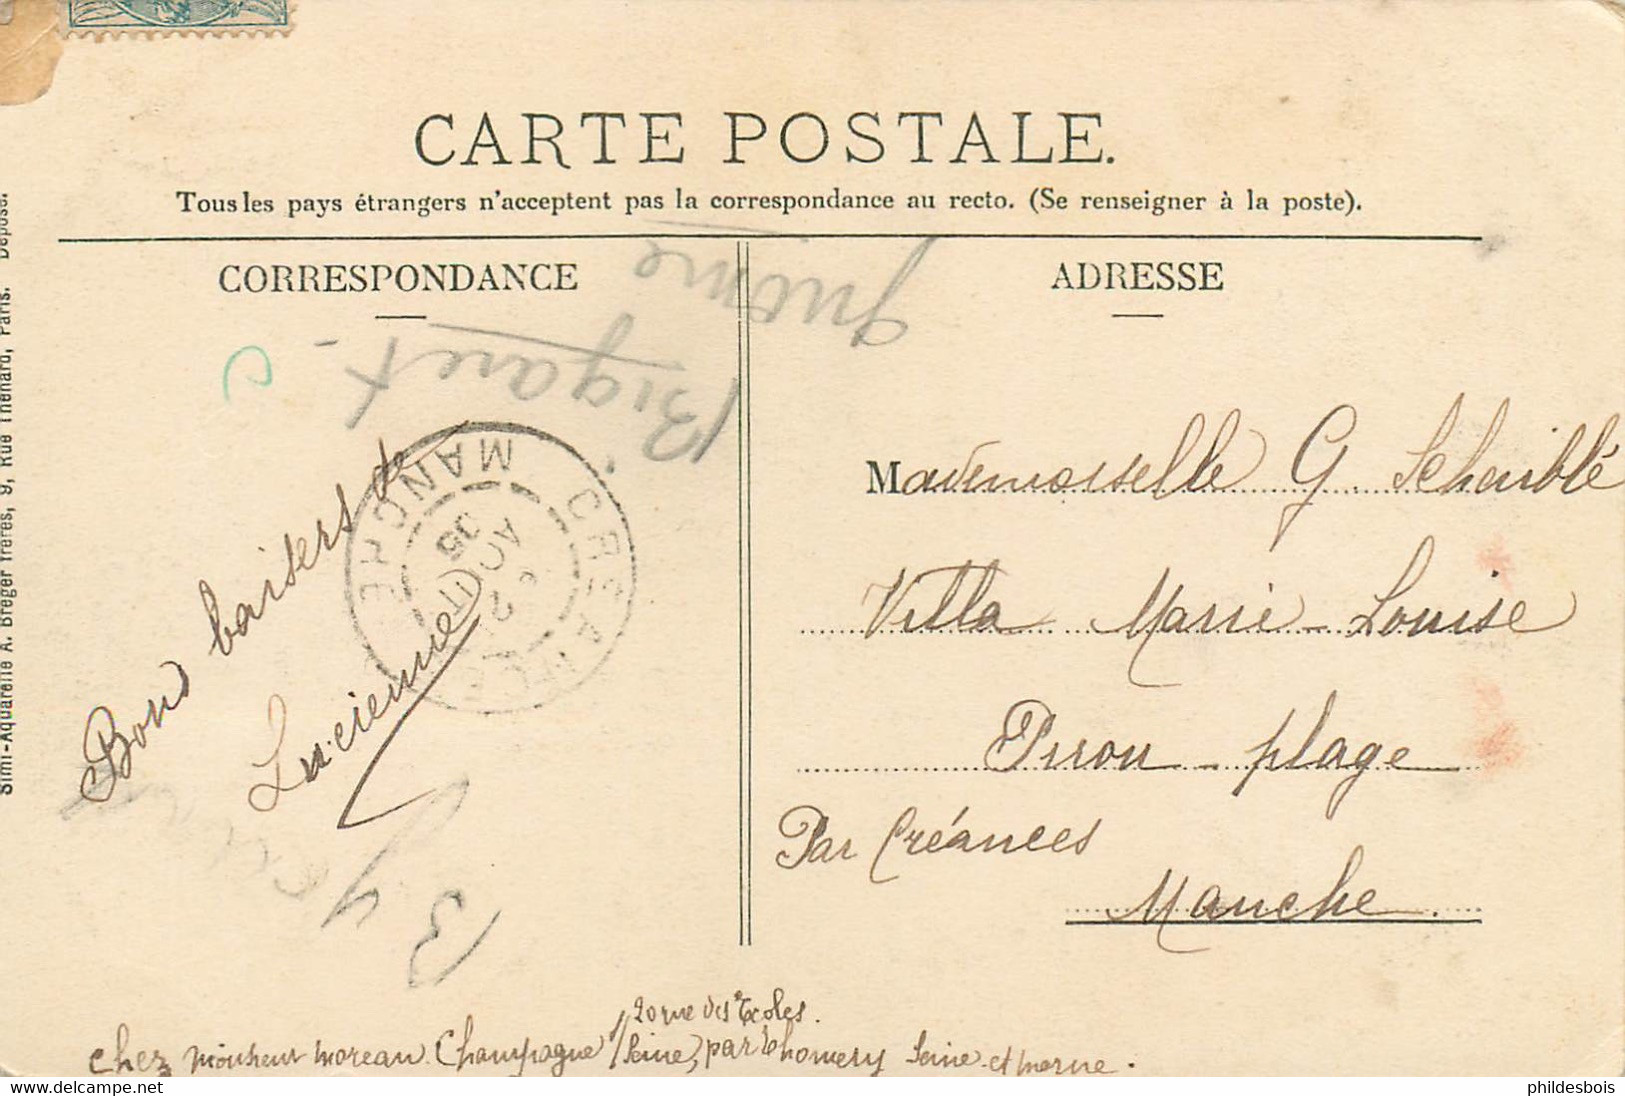 CARTE POSTALE.
Tous les pays étrangers n'acceptent pas la correspondance au recto. (Se renseigner à la poste).
Simi-Aquarelle A. Breger frères, 9, Rue Thénard, Paris. Déposé.
CORRESPONDANCE
Bons baisers de
Lucienne
MANCHE
CREANCES
2
AOUT
05
guième
Bigaret
ADRESSE
Mademoiselle G. Schaiblé
Villa Marie-Louise
Pirou-plage
Par Créances
Manche.
20 rue des Ecoles.
chez Monsieur Moreau. Champagne s/Seine, par Thomery Seine-et-marne.
phildesbois